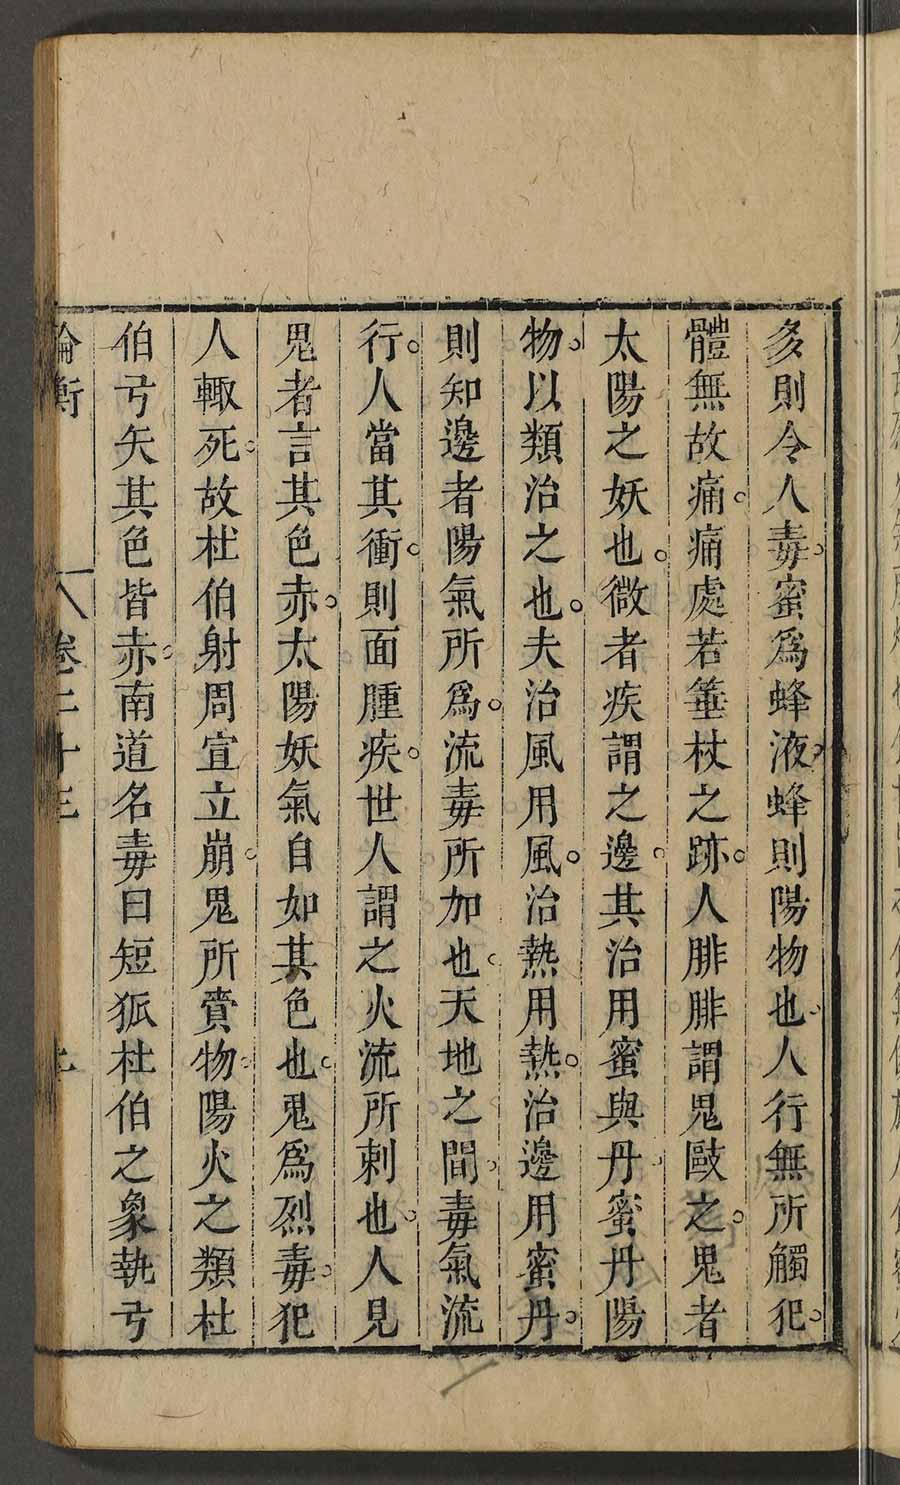 多則令人毒蜜爲蜂液蜂則陽物也人行無所觸犯
體無故痛痛處若箠杖之跡人腓腓謂鬼毆之鬼者
太陽之妖也微者疾謂之邊其治用蜜與丹蜜丹陽
物以類治之也夫治風用風治熱用熱治邊用蜜丹
則知邊者陽氣所爲流毒所加也天地之間毒氣流
行人當其衝則面腫疾世人謂之火流所刺也人見
鬼者言其色赤太陽妖氣自如其色也鬼爲烈毒犯
人輙死故杜伯射周宣立崩鬼所賫物陽火之類杜
伯弓矢其色皆赤南道名毒曰短狐杜伯之象執弓
論衡 卷二十三